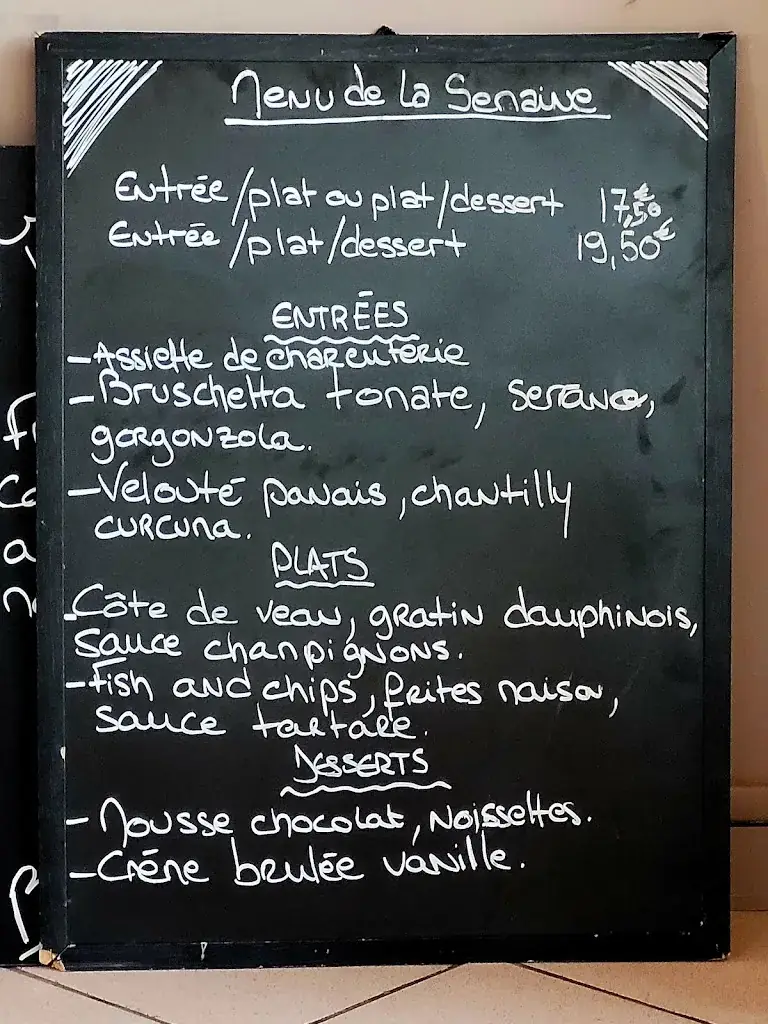 Menu de la Semaine
Entrée/plat ou plat/dessert 17,50€
Entrée/plat/dessert 19,50€
ENTRÉES
-Assiette de charcuterie
-Bruschetta tonate, serano,
gorgonzola.
-Velouté panais, chantilly
curcuma.
PLATS
-Côte de veau, gratin dauphinois,
sauce champignons.
-Fish and chips, frites maison,
sauce tartare.
DESSERTS
-Mousse chocolat, Noissettes.
-Créme brulée vanille.